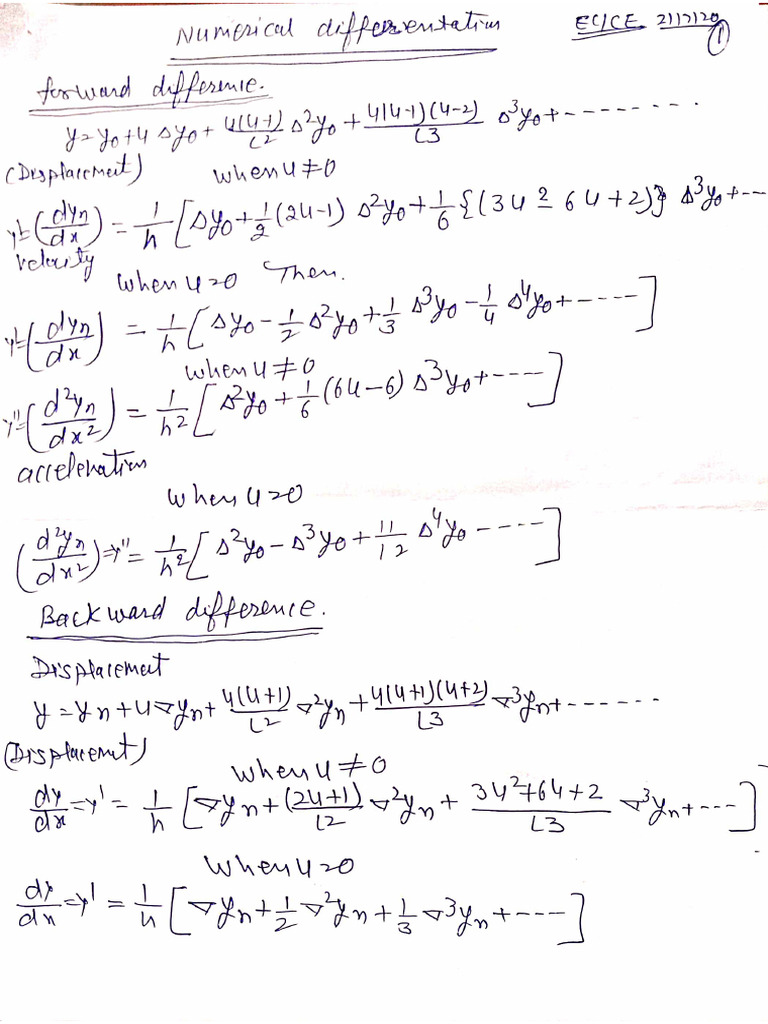 Numerical differentation EC/CE 21/7/20 ①
forward difference.
y = y₀ + u Δy₀ + u(u-1)/⌊2 Δ²y₀ + u(u-1)(u-2)/⌊3 Δ³y₀ + --------
(Displacment) when u ≠ 0
y' = (dyn/dx) = 1/h [Δy₀ + 1/2 (2u-1) Δ²y₀ + 1/6 {(3u² 6u+2)} Δ³y₀ + --
velocity when u=0 Then.
y' = (dyn/dx) = 1/h [Δy₀ - 1/2 Δ²y₀ + 1/3 Δ³y₀ - 1/4 Δ⁴y₀ + ----]
when u ≠ 0
y'' = (d²yn/dx²) = 1/h² [Δ²y₀ + 1/6 (6u-6) Δ³y₀ + ----]
acceleration
when u=0
(d²yn/dx²) = y'' = 1/h² [Δ²y₀ - Δ³y₀ + 11/12 Δ⁴y₀ ----]
Backward difference.
Displacement
y = yn + u∇yn + u(u+1)/⌊2 ∇²yn + u(u+1)(u+2)/⌊3 ∇³yn + ------
(Displacemnt)
when u ≠ 0
dy/dx = y' = 1/h [∇yn + (2u+1)/⌊2 ∇²yn + 3u²+6u+2/⌊3 ∇³yn + ---]
when u=0
dy/dx = y' = 1/h [∇yn + 1/2 ∇²yn + 1/3 ∇³yn + ---]